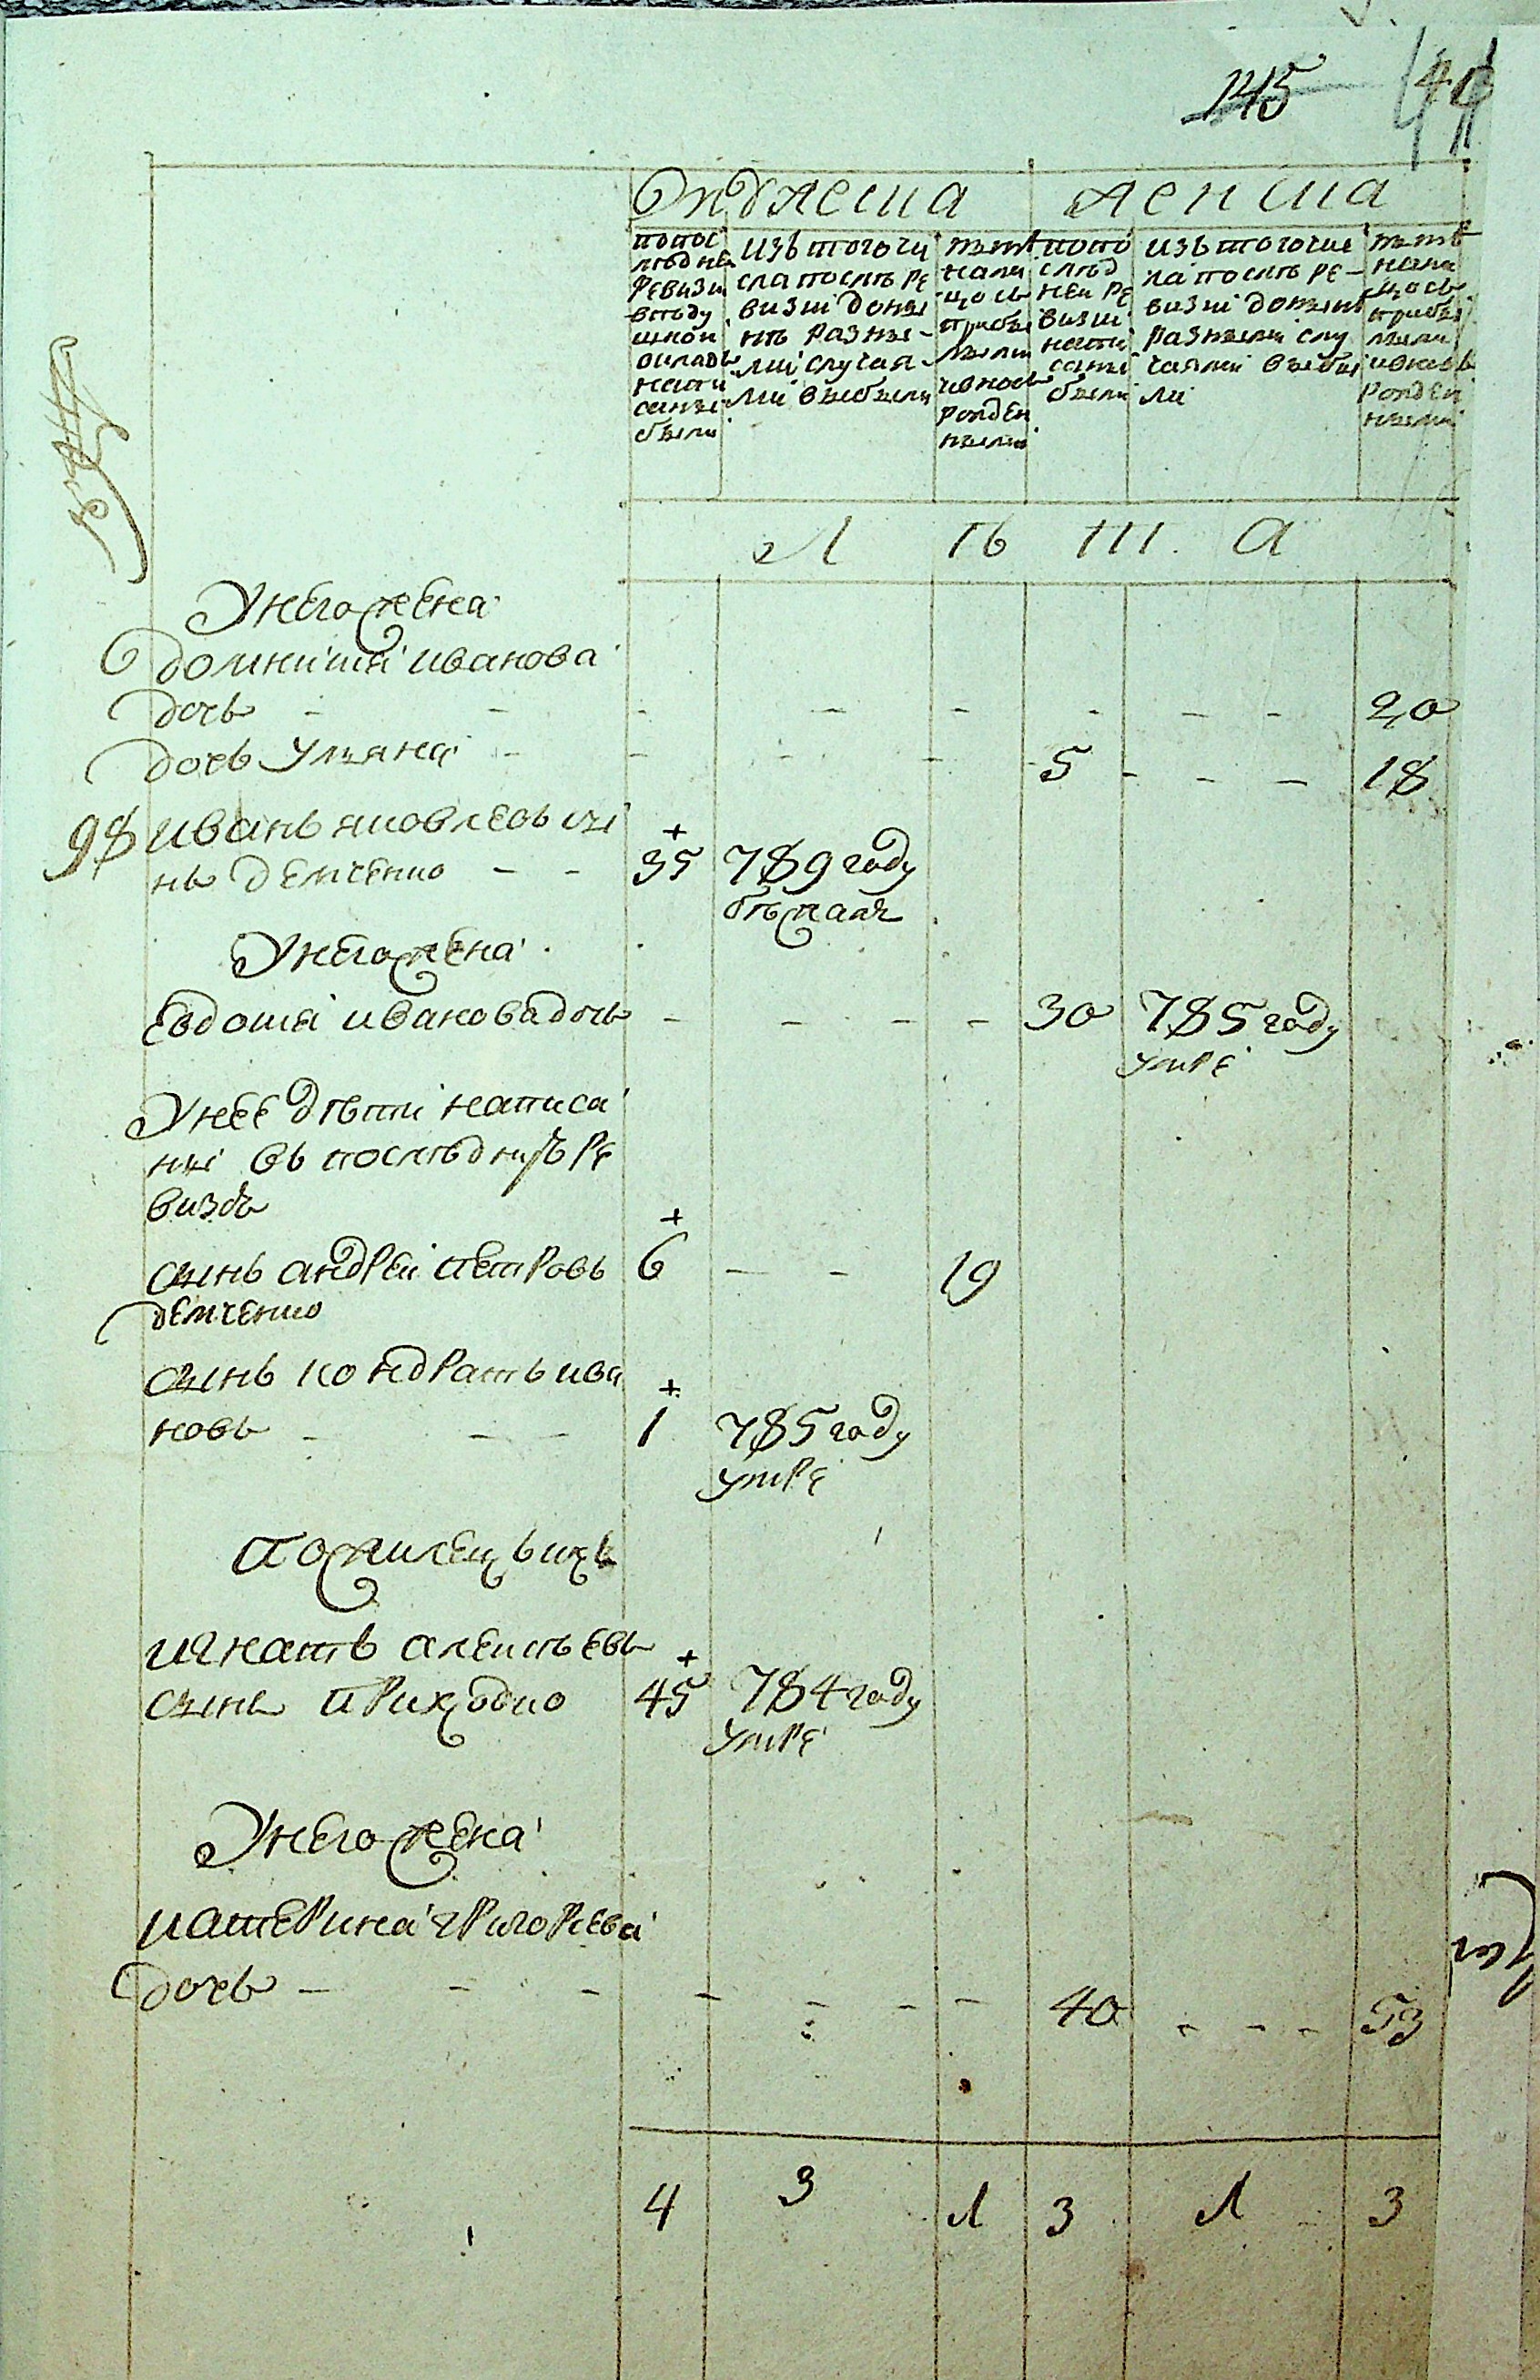 145
Онъ же ста женска
попос
лѣдней
ревизи
вподу
шной
окладъ
напи
саны
были
изъ того чи
сла послѣ ре
визиі доны
нѣ разны-
ми случая-
ми выбыли
нынѣ
нали
цо съ
прибы
лыми
ивновь
рожден
ными
попо
слѣд
ней ре
визиі
напи
саны
были
изъ того чис
ла послѣ ре-
визиі донынѣ
разными слу
чаями выбы
ли
нынѣ
нали
цо съ
прибы
лыми
ивновь
рожден
ными
Л ѣ т а
У него жена
домникия иванова
дочь - - - - - - - - 20
дочь Уляна - - - - 5 - - - 18
98 иванъ яковлевъ сы
нъ демченко - - 35 789 году
бѣжалъ
У него жена
Евдокия иванова дочь - - - - 30 785 году
умре
У нее дѣти написа
ны въ последнюю ре
визию
сынъ андрей петровъ 6 - - 19
демченко
сынъ кондратъ ива
новъ - - - 1 785 году
умре
пожилецъ ихъ
игнатъ алексѣевъ
сынъ приходко 45 784 году
умре
У него жена
катерина григорьева
дочь - - - - - - - 40 - - - 53
4 3 1 3 1 3